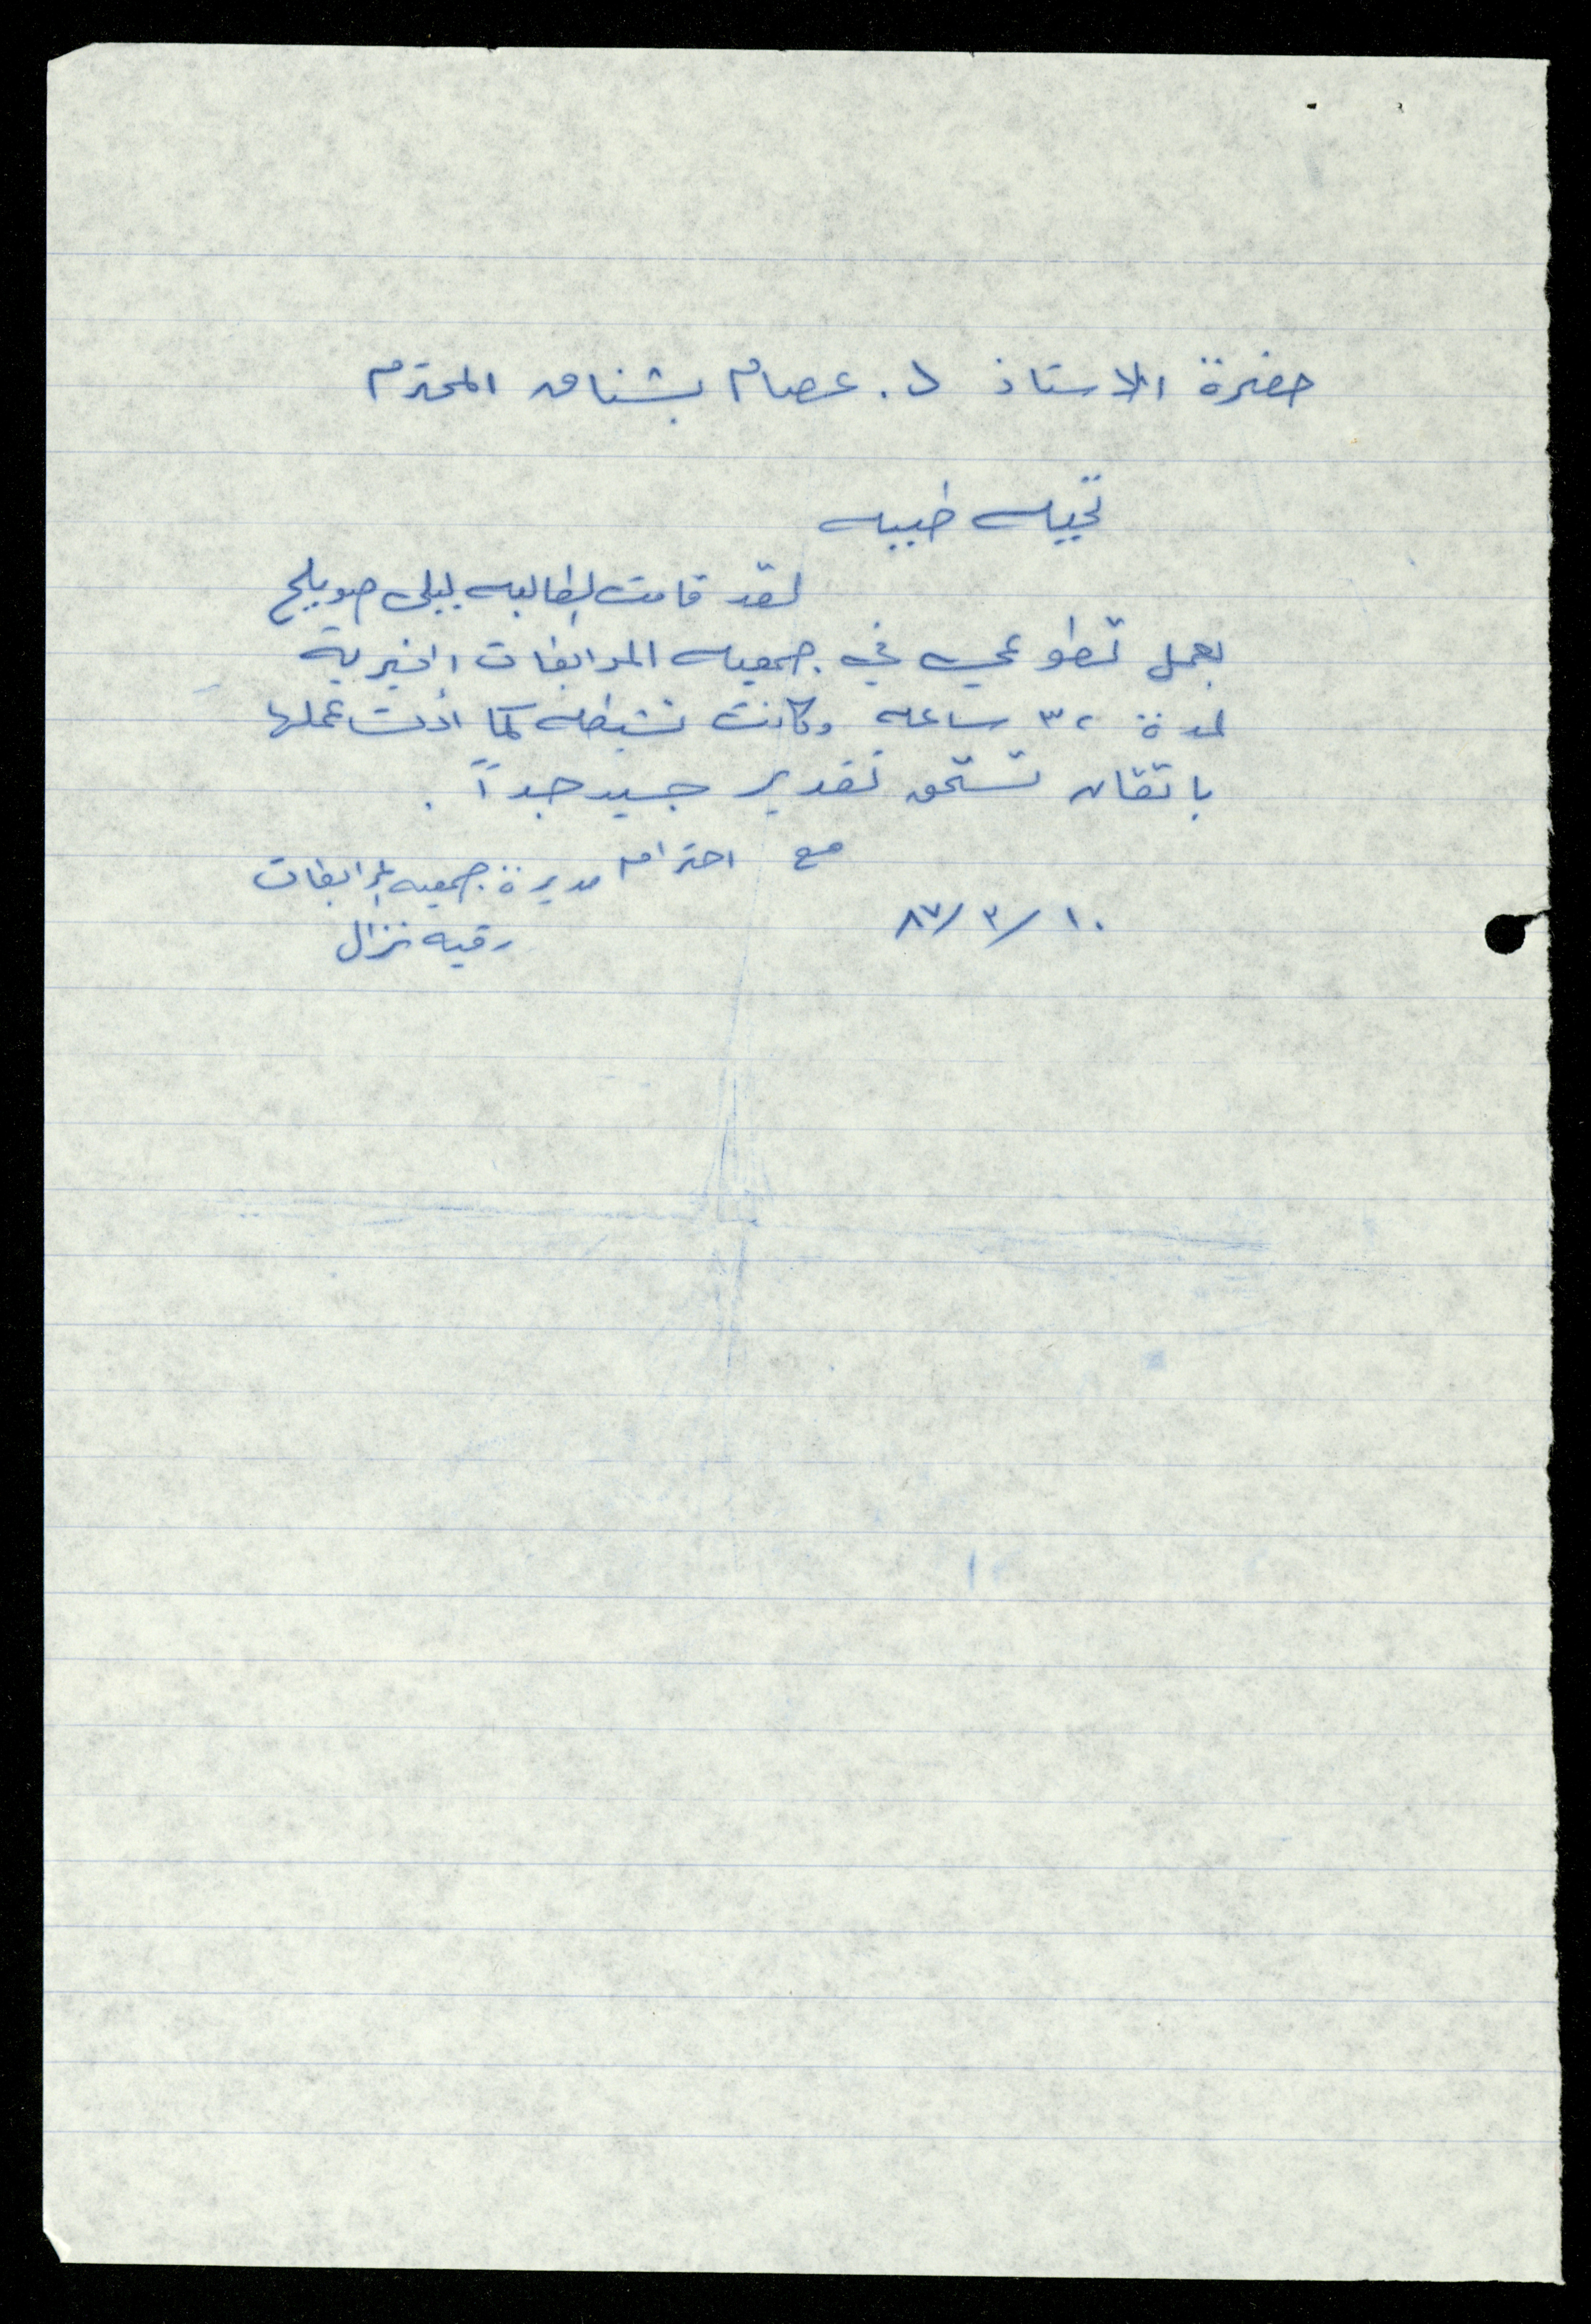 حضرة الاستاذ د. عصام بشناق المحترم
تحيه طيبه
لقد قامت الطالبه ليلى صويلح
بعمل تطوعي في جمعيه المرابطات الخيرية
لمدة ٣٠ ساعه وكانت نشيطه كما أدت عملها
باتقان تستحق تقدير جيد جداً .
مع احترام مديرة جمعيه المرابطات
١٠/٣/٨٧ رقيه نزال